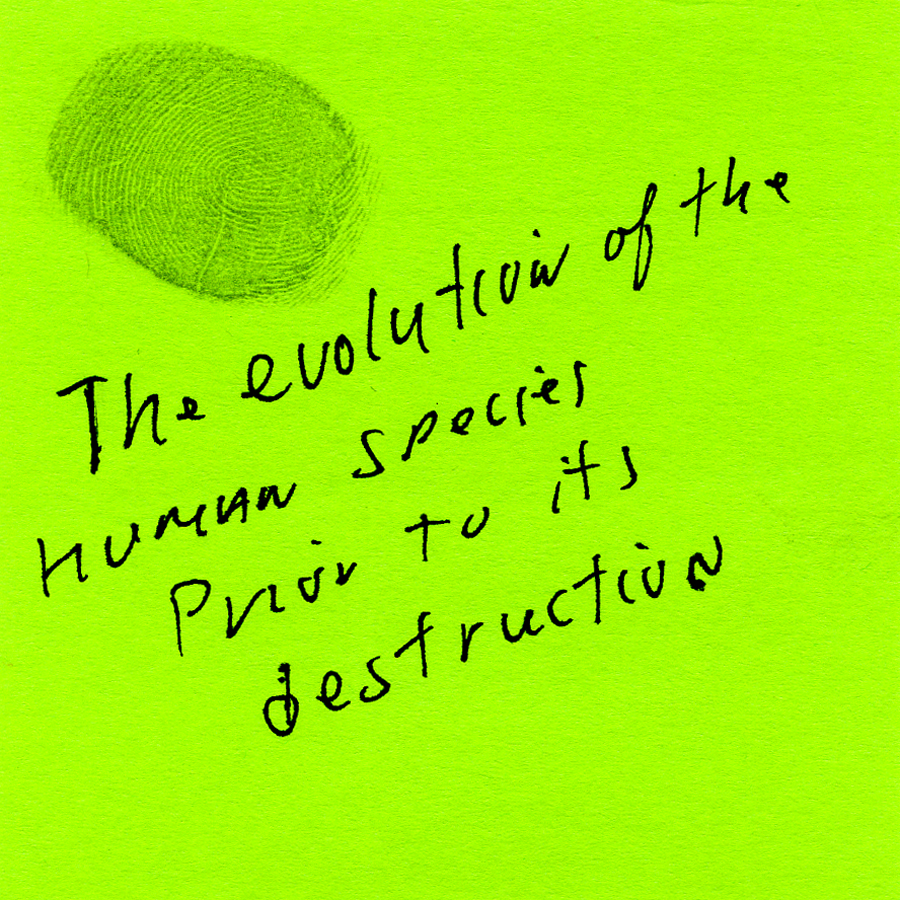 The evolution of the
human species
Prior to its
destruction